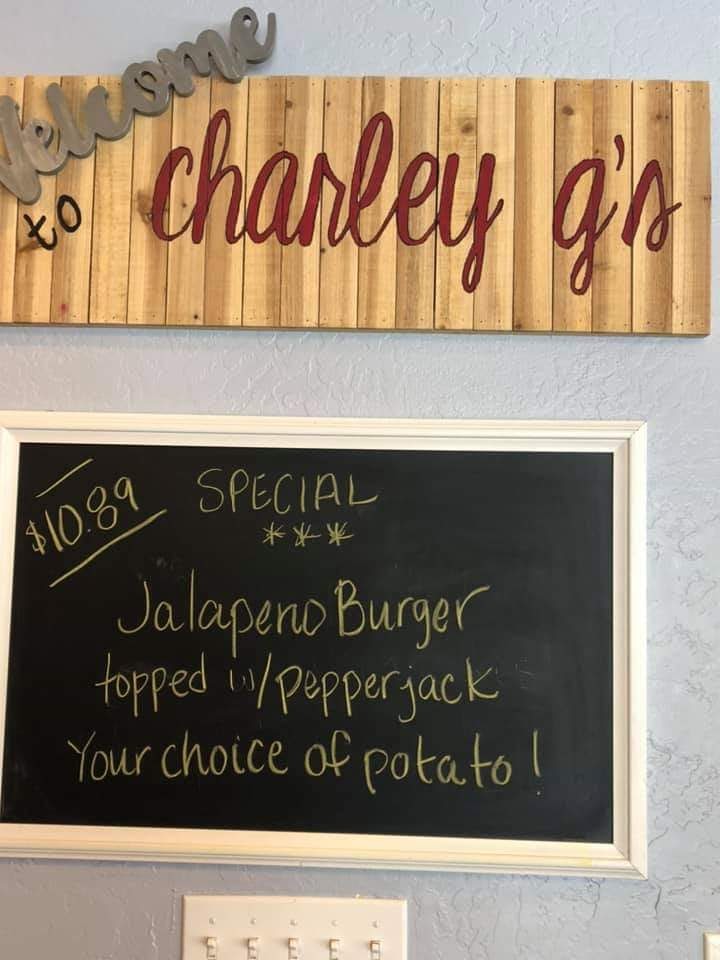 Welcome
to charley g's
$10.89 SPECIAL
***
Jalapeno Burger
topped w/pepperjack
Your choice of potato!